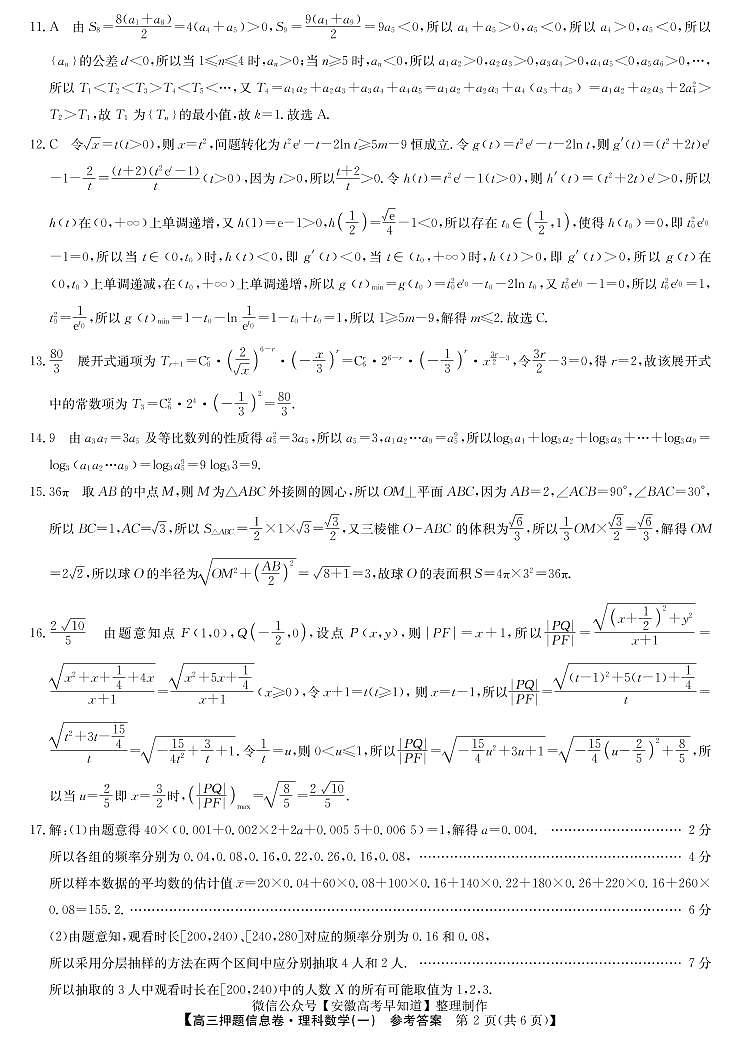 11. A 由 S₈=8(a₁+a₈)/2=4(a₄+a₅)>0,S₉=9(a₁+a₉)/2=9a₅<0,所以 a₄+a₅>0,a₅<0,所以 a₄>0,a₅<0,所以
{aₙ}的公差 d<0,所以当 1≤n≤4 时,aₙ>0;当 n≥5 时,aₙ<0,所以 a₁a₂>0,a₂a₃>0,a₃a₄>0,a₄a₅<0,a₅a₆>0,…,
所以 T₁<T₂<T₃>T₄<T₅<…,又 T₄=a₁a₂+a₂a₃+a₃a₄+a₄a₅=a₁a₂+a₂a₃+a₄(a₃+a₅)=a₁a₂+a₂a₃+2a₄²>
T₂>T₁,故 T₁ 为{Tₙ}的最小值,故 k=1. 故选 A.
12. C 令√x=t(t>0),则 x=t²,问题转化为 t²eᵗ-t-2ln t≥5m-9 恒成立. 令 g(t)=t²eᵗ-t-2ln t,则 g′(t)=(t²+2t)eᵗ
-1-2/t=(t+2)(t²eᵗ-1)/t(t>0),因为 t>0,所以(t+2)/t>0. 令 h(t)=t²eᵗ-1(t>0),则 h′(t)=(t²+2t)eᵗ>0,所以
h(t)在(0,+∞)上单调递增,又 h(1)=e-1>0,h(1/2)=√e/4-1<0,所以存在 t₀∈(1/2,1),使得 h(t₀)=0,即 t₀²e^(t₀)
-1=0,所以当 t∈(0,t₀)时,h(t)<0,即 g′(t)<0,当 t∈(t₀,+∞)时,h(t)>0,即 g′(t)>0,所以 g(t)在
(0,t₀)上单调递减,在(t₀,+∞)上单调递增,所以 g(t)min=g(t₀)=t₀²e^(t₀)-t₀-2ln t₀,又 t₀²e^(t₀)-1=0,所以 t₀²e^(t₀)=1,
t₀²=1/e^(t₀),所以 g(t)min=1-t₀-ln 1/e^(t₀)=1-t₀+t₀=1,所以 1≥5m-9,解得 m≤2. 故选 C.
13. 80/3 展开式通项为 Tᵣ₊₁=C₆ʳ·(2/√x)^(6-r)·(-x/3)^r=C₆ʳ·2^(6-r)·(-1/3)^r·x^(3r/2-3),令3r/2-3=0,得 r=2,故该展开式
中的常数项为 T₃=C₆²·2⁴·(-1/3)²=80/3.
14. 9 由 a₃a₇=3a₅ 及等比数列的性质得 a₅²=3a₅,所以 a₅=3,a₁a₂…a₉=a₅⁹,所以log₃a₁+log₃a₂+log₃a₃+…+log₃a₉=
log₃(a₁a₂…a₉)=log₃a₅⁹=9 log₃3=9.
15. 36π 取 AB 的中点 M,则 M 为△ABC 外接圆的圆心,所以 OM⊥平面 ABC,因为 AB=2,∠ACB=90°,∠BAC=30°,
所以 BC=1,AC=√3,所以 S△ABC=1/2×1×√3=√3/2,又三棱锥 O-ABC 的体积为√6/3,所以1/3OM×√3/2=√6/3,解得 OM
=2√2,所以球 O 的半径为√(OM²+(AB/2)²)=√(8+1)=3,故球 O 的表面积 S=4π×3²=36π.
16. 2√10/5 由题意知点 F(1,0),Q(-1/2,0),设点 P(x,y),则|PF|=x+1,所以|PQ|/|PF|=√((x+1/2)²+y²)/(x+1)=
√(x²+x+1/4+4x)/(x+1)=√(x²+5x+1/4)/(x+1)(x≥0),令 x+1=t(t≥1),则 x=t-1,所以|PQ|/|PF|=√((t-1)²+5(t-1)+1/4)/t=
√(t²+3t-15/4)/t=√(-15/4t²+3/t+1). 令1/t=u,则 0<u≤1,所以|PQ|/|PF|=√(-15/4u²+3u+1)=√(-15/4(u-2/5)²+8/5),所
以当 u=2/5即 x=3/2时,(|PQ|/|PF|)max=√(8/5)=2√10/5.
17. 解:(1)由题意得 40×(0.001+0.002×2+2a+0.005 5+0.006 5)=1,解得 a=0.004. …………………… 2 分
所以各组的频率分别为 0.04,0.08,0.16,0.22,0.26,0.16,0.08, …………………… 4 分
所以样本数据的平均数的估计值 x̄=20×0.04+60×0.08+100×0.16+140×0.22+180×0.26+220×0.16+260×
0.08=155.2. …………………… 6 分
(2)由题意知,观看时长[200,240)、[240,280]对应的频率分别为 0.16 和 0.08,
所以采用分层抽样的方法在两个区间中应分别抽取 4 人和 2 人. …………………… 7 分
所以抽取的 3 人中观看时长在[200,240)中的人数 X 的所有可能取值为 1,2,3.
微信公众号【安徽高考早知道】整理制作
【高三押题信息卷·理科数学(一) 参考答案 第 2 页(共 6 页)】